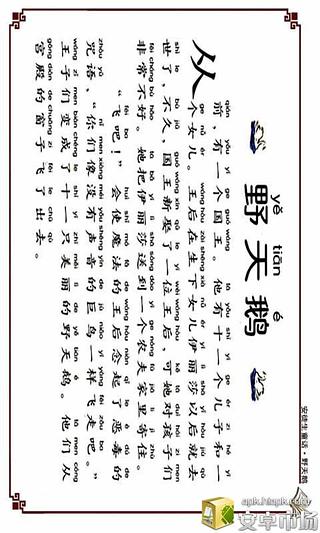 yě tiān é
野天鹅
qián yǒu yí gè guó wáng tā yǒu shí yī gè ér zi hé yí
从前，有一个国王。他有十一个儿子和一
gè nǚ ér wáng hòu zài shēng xià nǚ ér yī lì shā yǐ hòu jiù qù
个女儿。王后在生下女儿伊丽莎以后就去
shì le bù jiǔ guó wáng xīn qǔ le yí wèi wáng hòu kě tā duì hái zi men
世了，不久，国王新娶了一位王后，可她对孩子们
fēi cháng bù hǎo tā bǎ yī lì shā sòng dào yí gè nóng fū jiā lǐ jì zhù
非常不好。她把伊丽莎送到一个农夫家里寄住。
fēi ba huì shǐ mó fǎ de wáng hòu niàn qǐ le è dú de
“飞吧！”会使魔法的王后念起了恶毒的
zhòu yǔ nǐ men xiàng méi yǒu shēng yīn de jù niǎo yí yàng fēi zǒu ba
咒语，“你们像没有声音的巨鸟一样飞走吧。”
wáng zǐ men biàn chéng le shí yī zhī měi lì de yě tiān é tā men cóng
王子们变成了十一只美丽的野天鹅。他们从
gōng diàn de chuāng zi fēi le chū qù
宫殿的窗子飞了出去。
安徒生童话·野天鹅
apk.hiapk.com
安卓市场